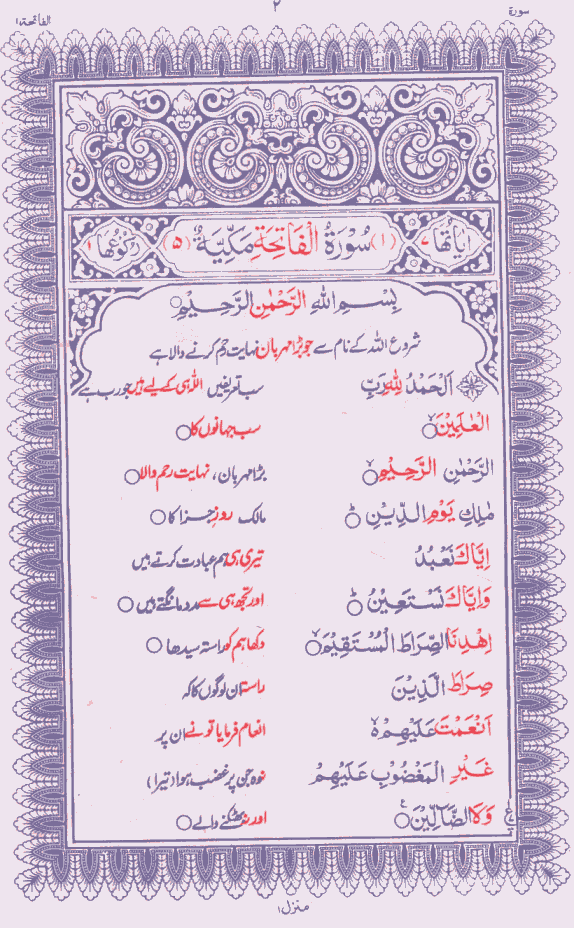 سورۃ ۲ الفاتحۃ۱
اٰیَاتُهَا ۷ (۱) سُوْرَةُ الْفَاتِحَةِ مَكِّيَّةٌ (۵) رُكُوْعُهَا ۱
بِسْمِ اللهِ الرَّحْمٰنِ الرَّحِيْمِ○
شروع اللہ کے نام سے جو بڑا مہربان نہایت رحم کرنے والا ہے
اَلْحَمْدُ لِلّٰهِ رَبِّ سب تعریفیں اللہ ہی کے لیے ہیں جو رب ہے
الْعٰلَمِيْنَ○ سب جہانوں کا○
الرَّحْمٰنِ الرَّحِيْمِ○ بڑا مہربان، نہایت رحم والا○
مٰلِكِ يَوْمِ الدِّيْنِ○ مالک روزِ جزا کا○
اِيَّاكَ نَعْبُدُ تیری ہی ہم عبادت کرتے ہیں
وَاِيَّاكَ نَسْتَعِيْنُ○ اور تجھ ہی سے مدد مانگتے ہیں○
اِهْدِنَا الصِّرَاطَ الْمُسْتَقِيْمَ○ دکھا ہم کو راستہ سیدھا○
صِرَاطَ الَّذِيْنَ راستا ان لوگوں کا کہ
اَنْعَمْتَ عَلَيْهِمْ○ انعام فرمایا تو نے ان پر
غَيْرِ الْمَغْضُوْبِ عَلَيْهِمْ نہ وہ جن پر غضب ہوا (تیرا)
وَلَا الضَّآلِّيْنَ○ اور نہ بھٹکنے والے○
منزل۱